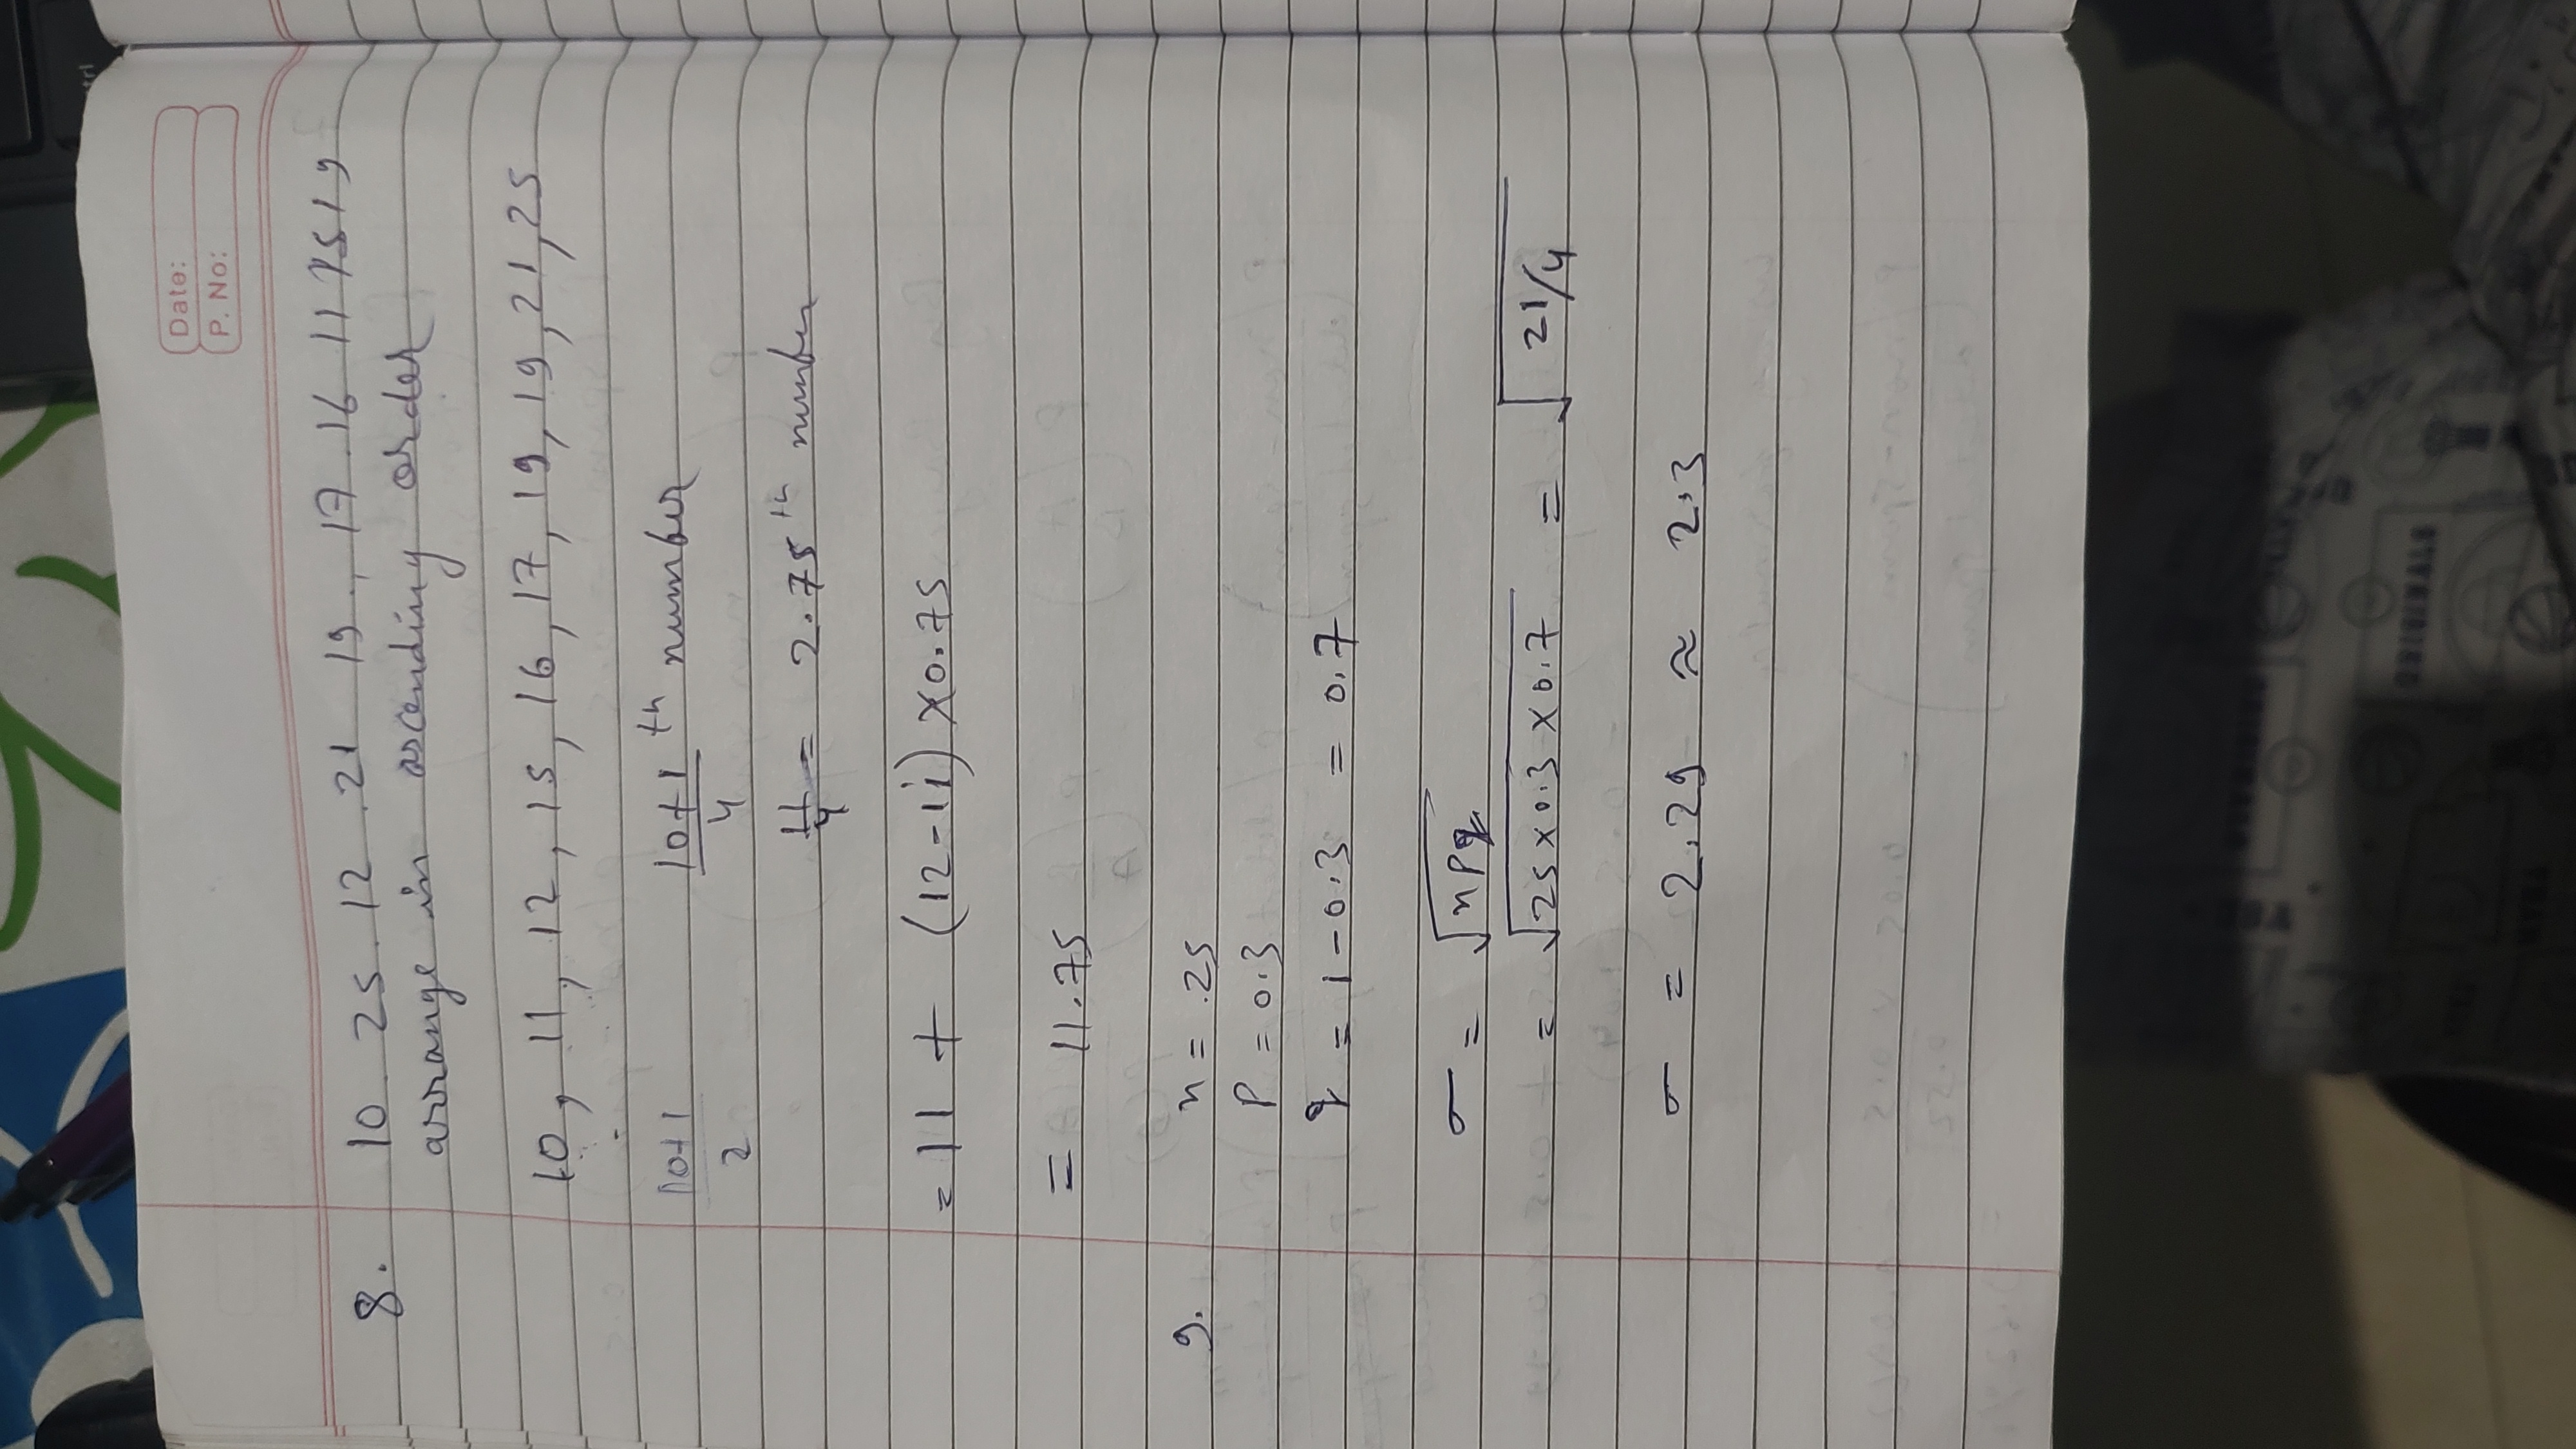 trl
Date:
P. No:
8. 10 . 25 . 12 . 21 19 . , 17 . 16 11 15 19
arrange in ascending order
10, 11, 12, 15, 16, 17, 19, 19, 21, 25
10+1/2 10+1/4 th number
11/4 = 2.75th number
= 11 + (12-11) ×0.75
= 11.75
9. n = .25
P = 0.3
q = 1 - 0.3 = 0.7
σ = √npq
= √25×0.3×0.7 = √21/4
σ = 2.29 ≈ 2.3
ORIGINALS